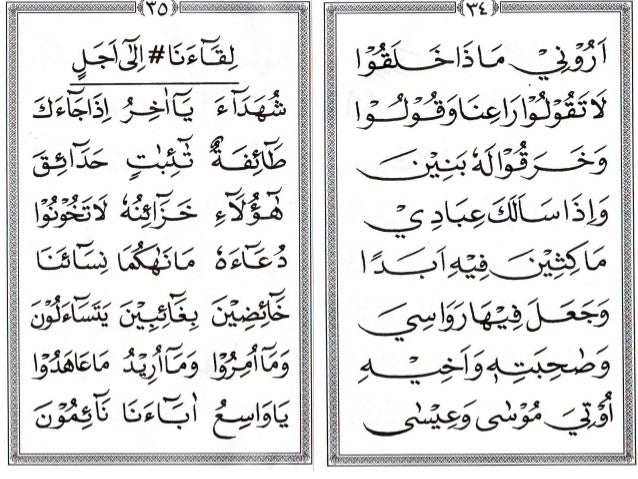 ٣٤
اَرُوْنِيْ مَاذَا خَلَقُوْا
لَا تَقُوْلُوْا رَاعِنَا وَقُوْلُوْا
وَخَرَقُوْا لَهٗ بَنِيْنَ
وَاِذَا سَاَلَكَ عِبَادِيْ
مَاكِثِيْنَ فِيْهِ اَبَدًا
وَجَعَلَ فِيْهَا رَوَاسِيَ
وَصَاحِبَتِهٖ وَاَخِيْهِ
اُوْتِيَ مُوْسٰى وَعِيْسٰى
٣٥
لِقَآءَنَا # اِلٰٓى اَجَلٍ
شُهَدَآءَ يَآاٰخِرُ اِذَاجَآءَكَ
طَآئِفَةٌ تٰٓئِبٰتٍ حَدَآئِقَ
هٰٓؤُلَآءِ خَزَآئِنُهٗ لَاتَخُوْنُوْا
دُعَآءَهٗ مَانَهٰكُمَا نِسَآئَنَا
خَآئِضِيْنَ بِغَآئِبِيْنَ يَتَسَآءَلُوْنَ
وَمَآاُمِرُوْا وَمَآاُرِيْدُ مَاعَاهَدُوْا
يَاوَاسِعُ اٰبَآءَنَا نَآئِمُوْنَ